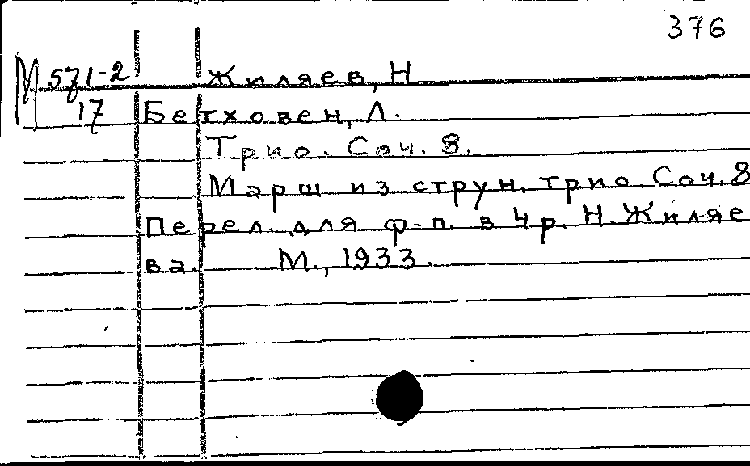 376
М 571-2 Жиляев, Н
17 Бетховен, Л.
Трио. Соч. 8.
Марш из струн. трио. Соч. 8
Перел. для ф-п. в 4 р. Н. Жиляе
ва. М., 1933.